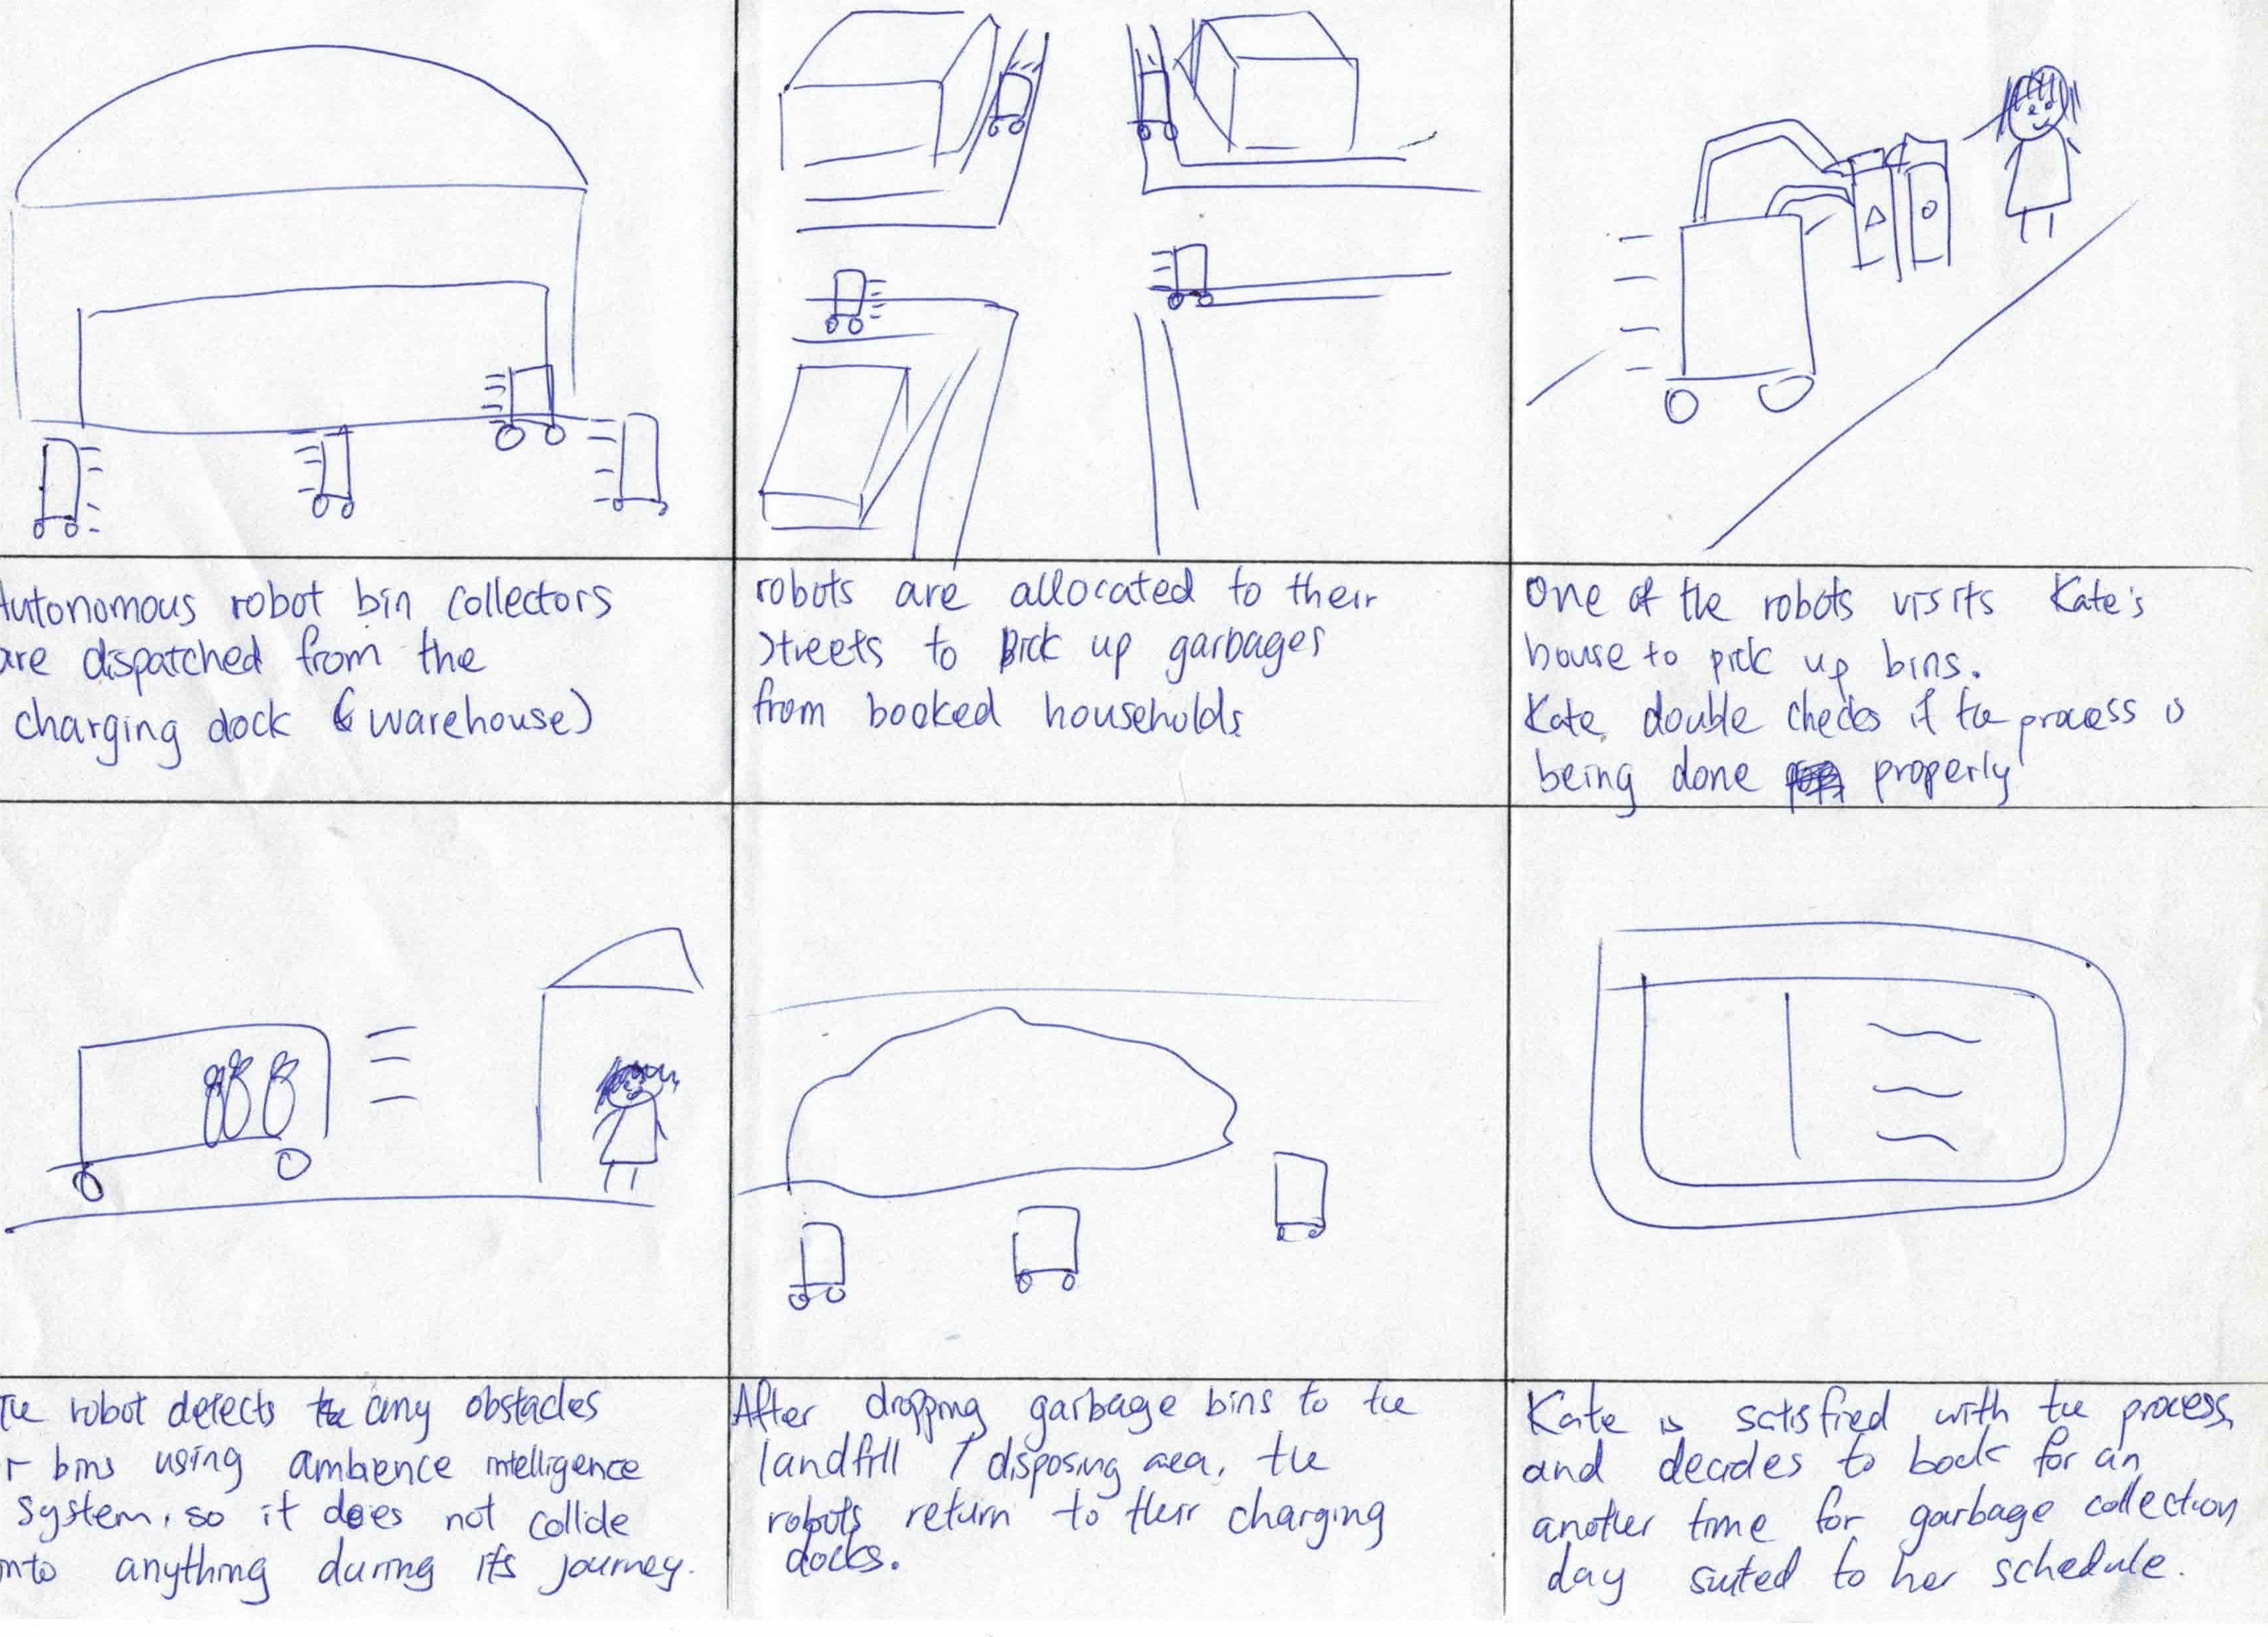 Autonomous robot bin collectors
are dispatched from the
charging dock (warehouse)
robots are allocated to their
streets to pick up garbages
from booked households.
One of the robots visits Kate's
house to pick up bins.
Kate double checks if the process is
being done properly
The robot detects any obstacles
or bins using ambience intelligence
system, so it does not collide
into anything during its journey.
After dropping garbage bins to the
landfill / disposing area, the
robots return to their charging
docks.
Kate is satisfied with the process,
and decides to book for an
another time for garbage collection
day suited to her schedule.